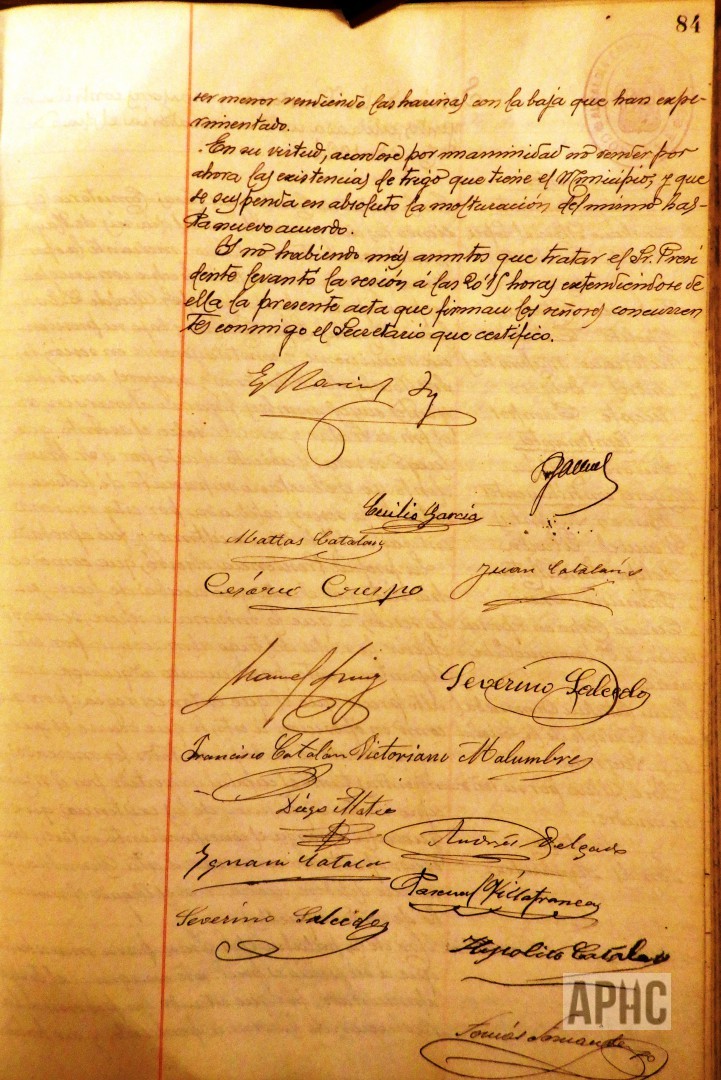 84
ser menor vendiendo las harinas con la baja que han expe-
rimentado.
En su virtud, acordose por unanimidad no vender por
ahora las existencias de trigo que tiene el Municipio, y que
se suspenda en absoluto la molturación del mismo has-
ta nuevo acuerdo.
Y no habiendo más asuntos que tratar el Sr. Presi
dente levantó la sesión á las 20'15 horas extendiéndose de
ella la presente acta que firman los señores concurren
tes conmigo el Secretario que certifico.
Emilio García
Matías Catalán
Juan Catalán
Cesáreo Crespo
Manuel Puig
Severino Salcedo
Francisco Catalán Victoriano Malumbres
Diego Mateo
Andrés Delgado
Ygnacio Catalán
Pascual Villafranca
Severino Salcedo
Hipolito Catalán
APHC
Tomás